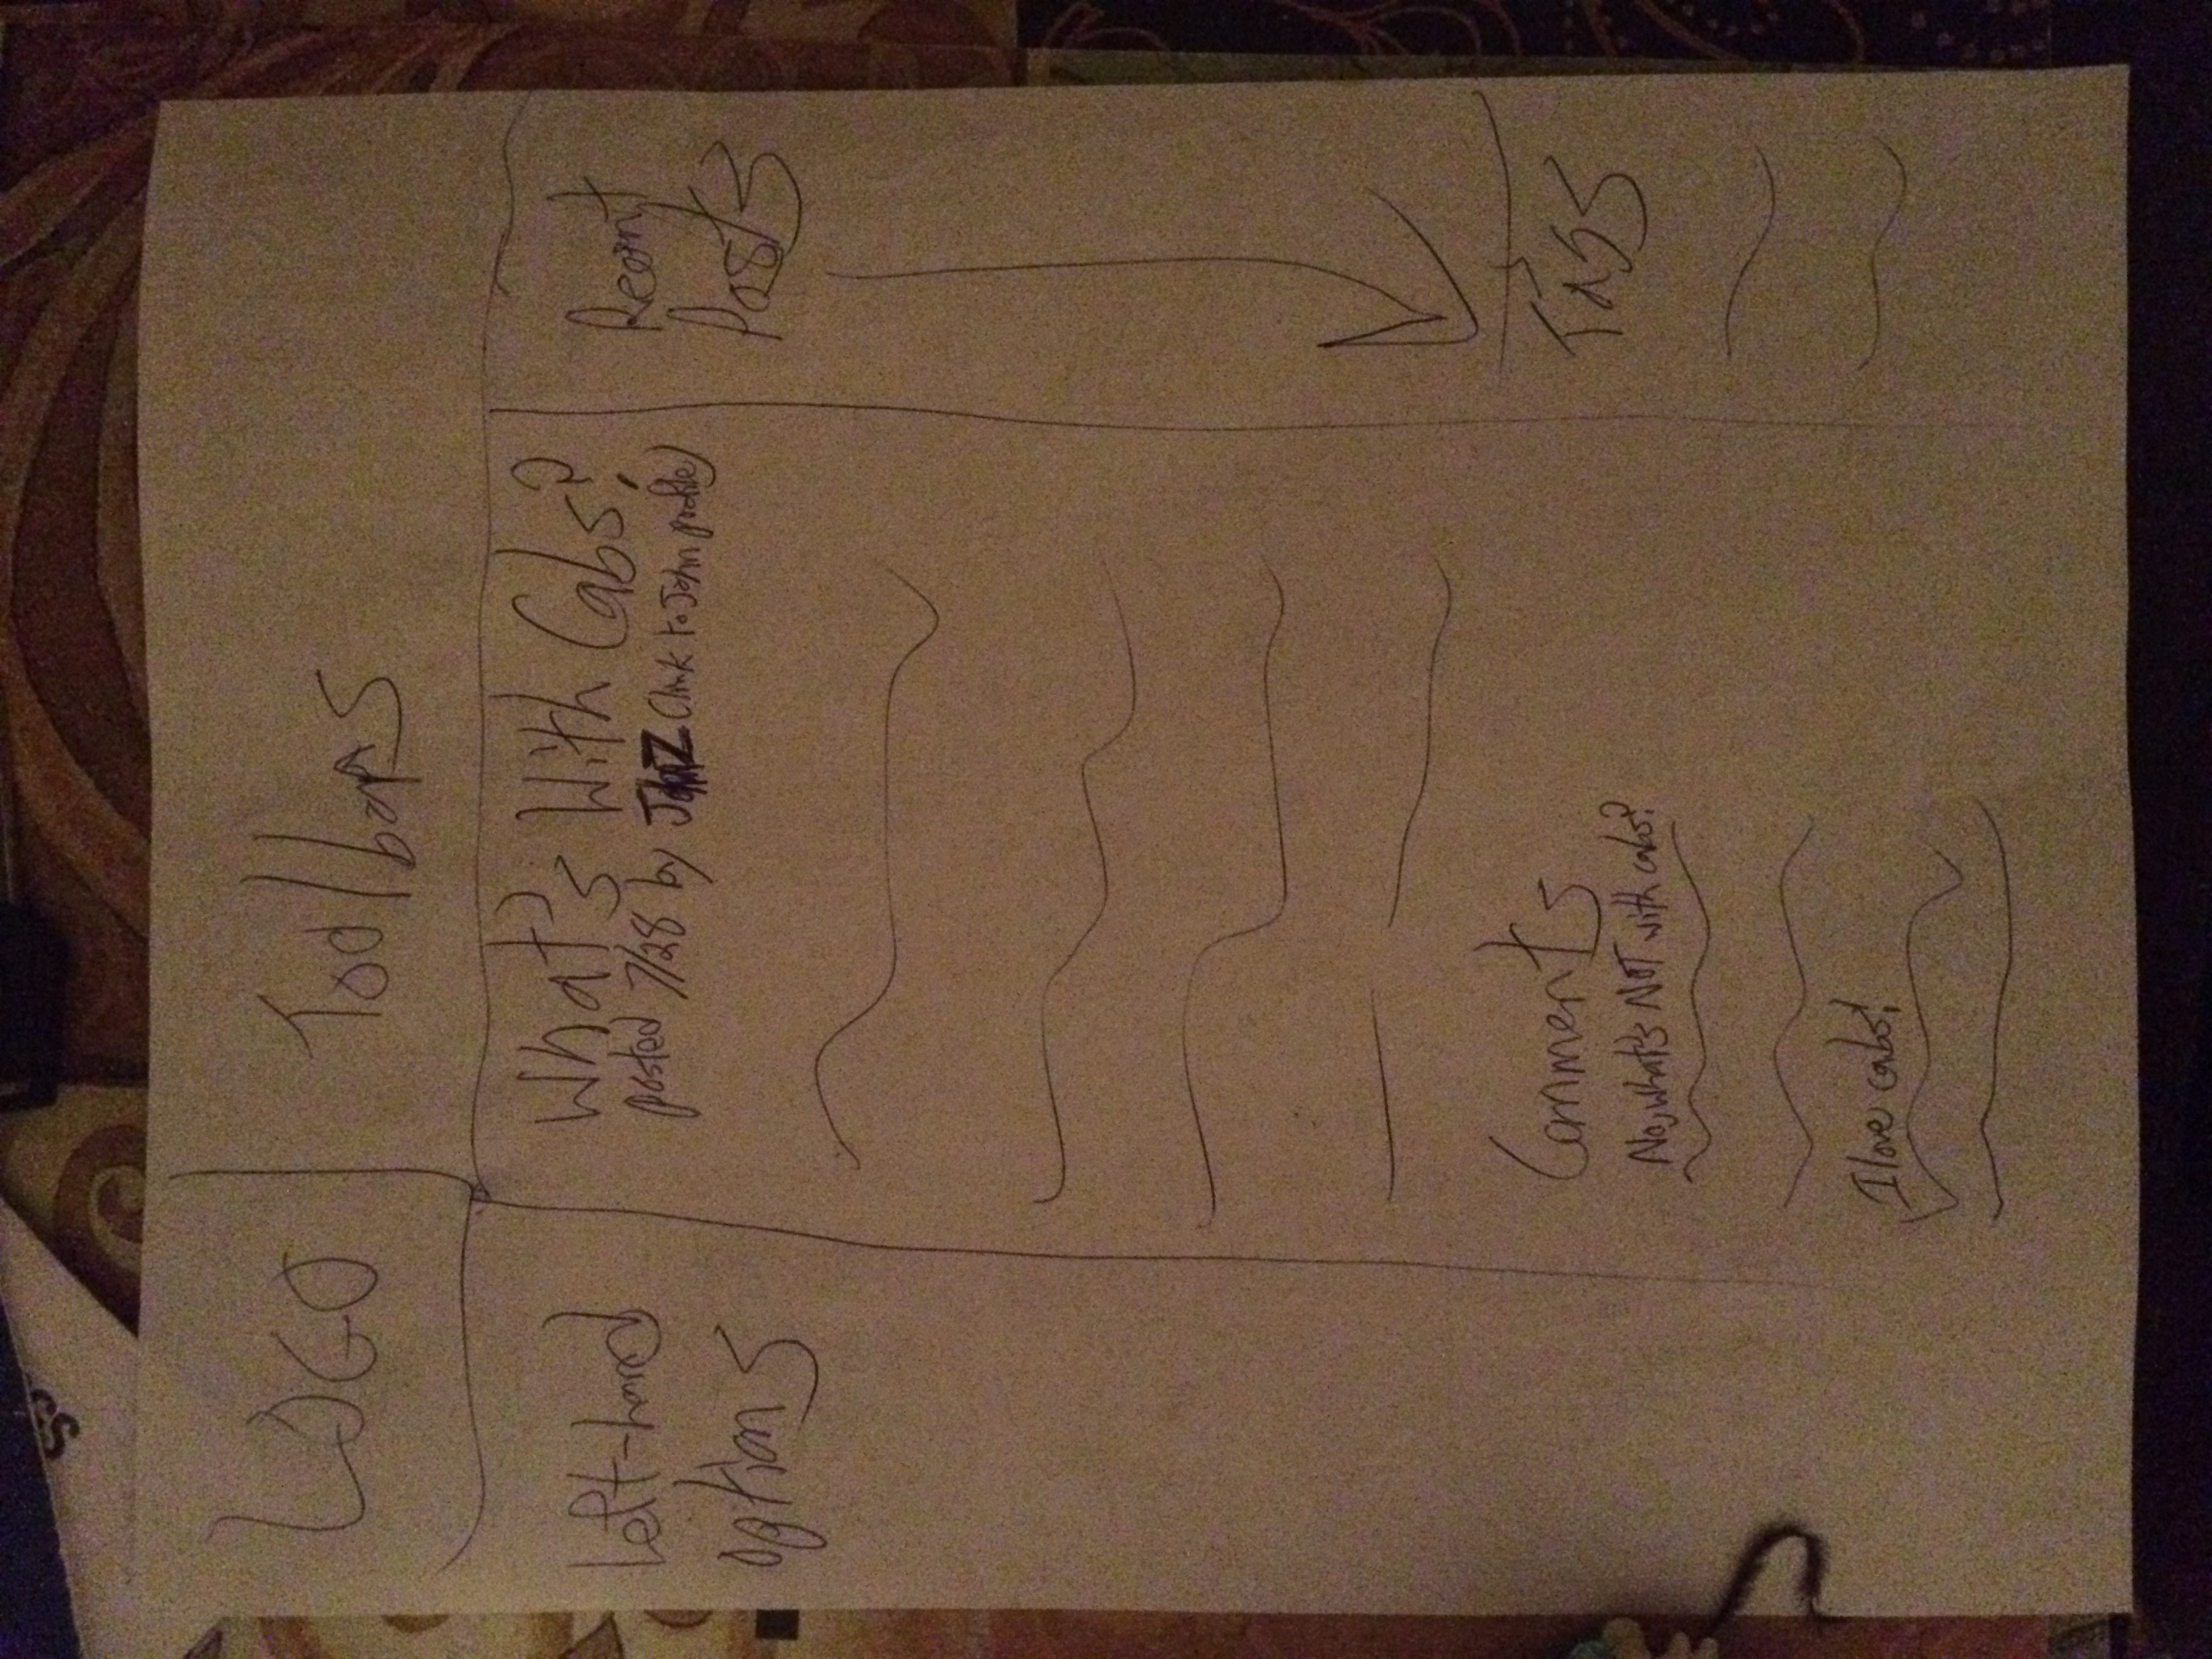 LOGO
Toolbars
Left-hand
options
What's With Cabs?
posted 7/28 by JohnZ (link to John profile)
Recent
Posts
Comments
No, what's NOT with cabs?
I love cabs!
Tags